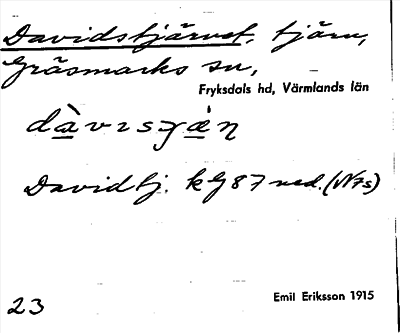 Davidstjärnet, tjärn,
Gräsmarks sn,
Fryksdals hd, Värmlands län
Davidtj. kg 87 ned. (N7s)
23
Emil Eriksson 1915